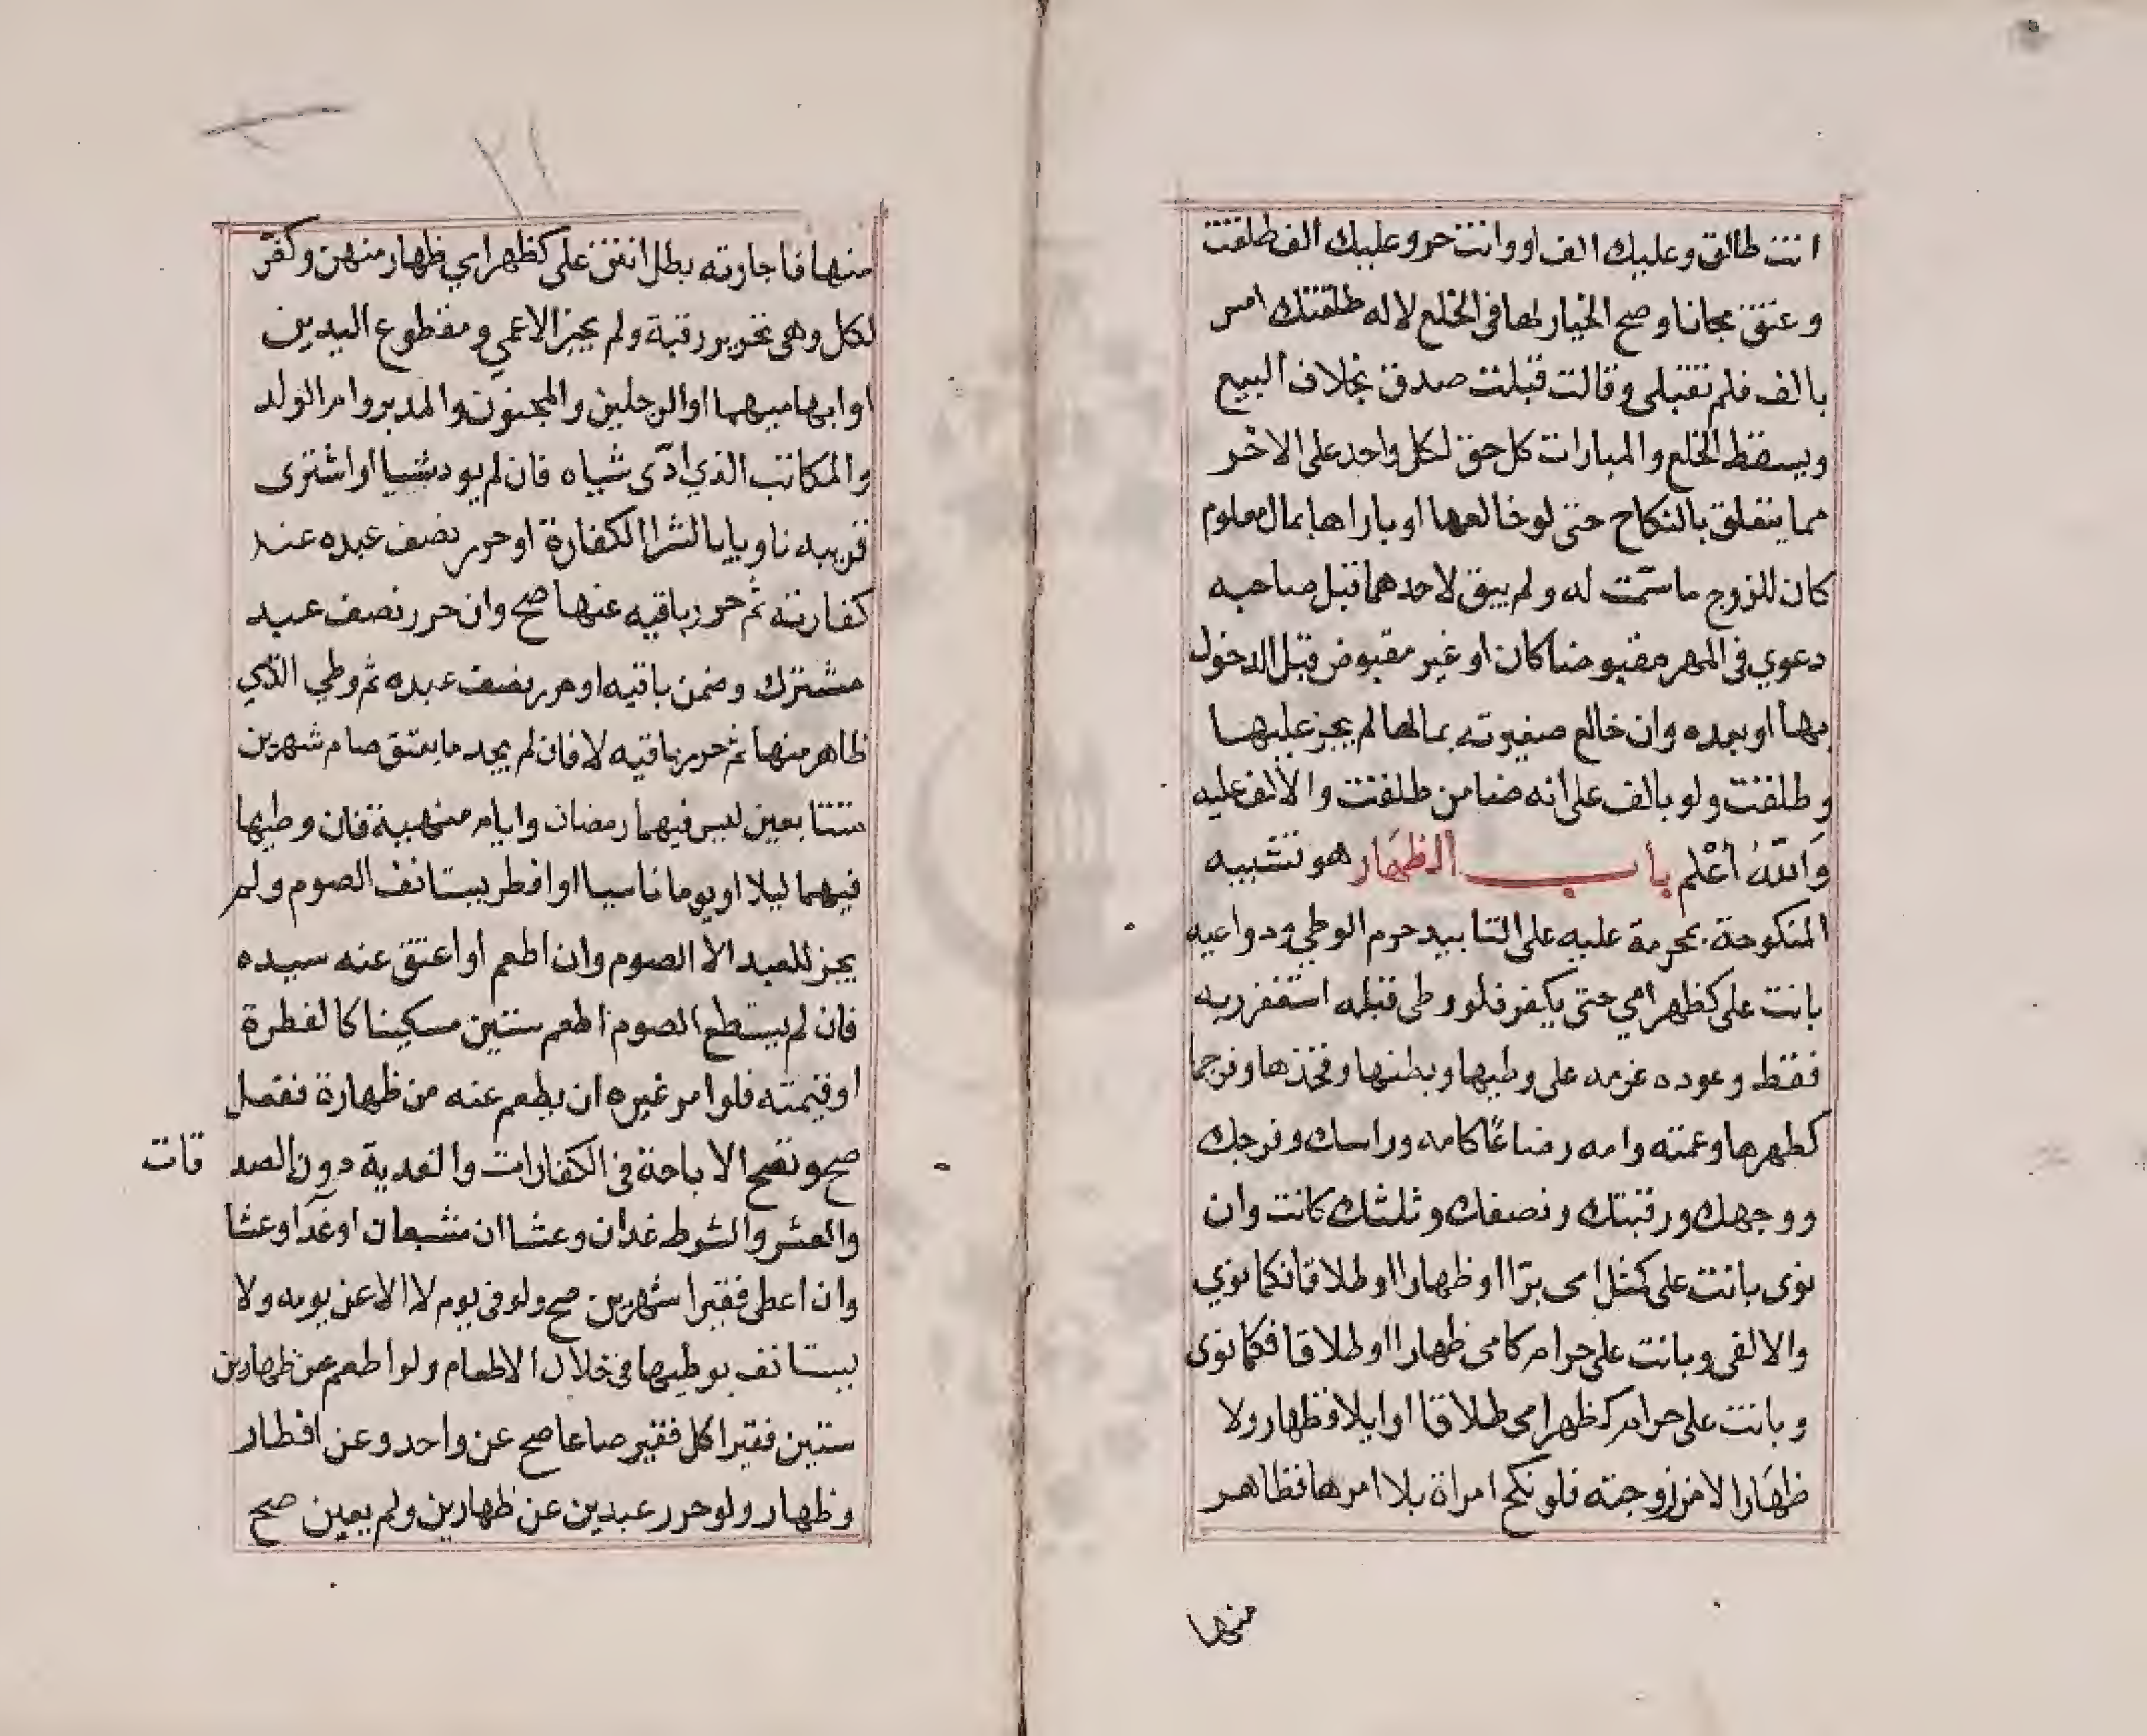 انت طالق وعليك الف او وانت حر وعليك الف طلقت
وعتق مجانا وصح الخيار لها في الخلع لا له طلقتك امس
بالف فلم تقبلي وقالت قبلت صدق بخلاف البيع
ويسقط الخلع والمبارات كل حق لكل واحد على الاخر
مما يتعلق بالنكاح حتى لو خالعها او باراها بمال معلوم
كان للزوج ما سمت له ولم يبق لاحدهما قبل صاحبه
دعوي في المهر مقبوضا كان او غير مقبوض قبل الدخول
بها او بعده وان خالع صغيرته بمالها لم يجز عليها
وطلقت ولو بالف على انه ضامن طلقت والالف عليه
والله أعلم باب الظهار هو تشبيه
المنكوحة بمحرمة عليه على التابيد حرم الوطي ودواعيه
بانت على كظهر امي حتى يكفر فلو وطى قبله استغفر ربه
فقط وعوده عزمه على وطيها وبطنها وفخذها وفرجها
كظهرها وعمته وامه رضاعا كامه وراسك وفرجك
ووجهك ورقبتك ونصفك وثلثك كانت وان
نوى بانت على كمثل امى برا او ظهارا او طلاقا فكما نوي
والا لغى وبانت على حرام كامى ظهارا او طلاقا فكما نوى
وبانت على حرام كظهر امى طلاقا او ايلا فظهار ولا
ظهارا الا من زوجته فلو نكح امراة بلا امرها فظاهر
منها
٢١
منها فاجازته بطل انتن على كظهر امي ظهار منهن وكفر
لكل وهى تحرير رقبة ولم يجز الاعمي ومقطوع اليدين
او ابهاميهما او الرجلين والمجنون والمدبر وام الولد
والمكاتب الذي ادى شياه فان لم يود شيا او اشترى
قريبه ناويا بالشرا الكفارة او حرر نصف عبده عند
كفارته ثم حرر باقيه عنها صح وان حرر نصف عبد
مشترك وضمن باقيه او حرر نصف عبده ثم وطي التي
ظاهر منها ثم حرر باقيه لا فان لم يجد ما يعتق صام شهرين
متتابعين ليس فيهما رمضان وايام منهية فان وطيها
فيهما ليلا او يوما ناسيا او افطر يستانف الصوم ولم
يجز للعبد الا الصوم وان اطعم او اعتق عنه سيده
فان لم يستطع الصوم اطعم ستين مسكينا كالفطرة
او قيمته فلو امر غيره ان يطعم عنه من ظهارة ففعل
صح وتصح الاباحة في الكفارات والفدية دون الصد قات
والعشر والشرط غدان وعشاان مشبعان او غدا وعشا
وان اعطى فقيرا شهرين صح ولو فى يوم لا الا عن يومه ولا
يستانف بوطيها في خلال الاطعام ولو اطعم عن ظهارين
ستين فقيرا كل فقير صاعا صح عن واحد وعن افطار
وظهار ولو حرر عبدين عن ظهارين ولم يعين صح